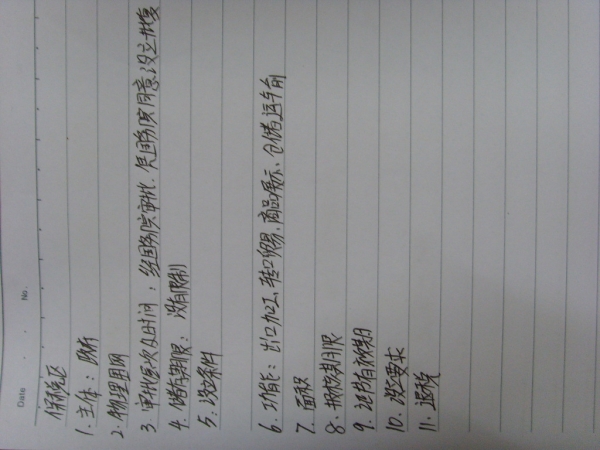 Date . . No.
保税区
1. 主体:
2. 物理围网
3. 审批层次及时间:经国务院审批,凭国务院同意设立批复
4. 储存期限:没有限制
5. 设立条件
6. 功能:出口加工、转口贸易、商品展示、仓储运
7. 面积
8. 期限
9. 有效期
10. 设立要求
11. 退税